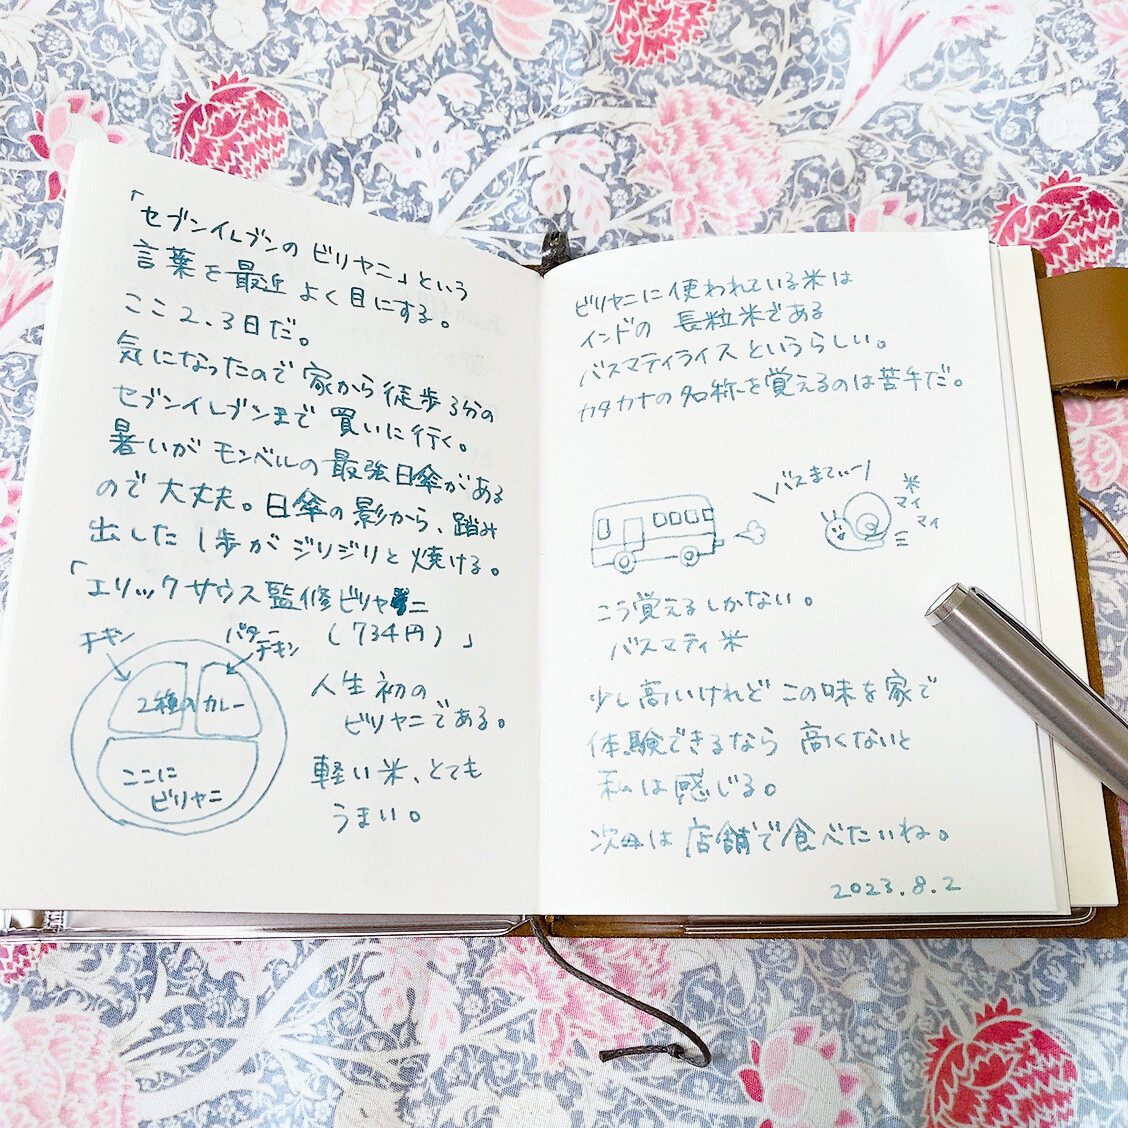 「セブンイレブンの ビリヤニ」という
言葉を最近 よく目にする。
ここ2、3日だ。
気になったので 家から徒歩3分の
セブンイレブンまで 買いに行く。
暑いが モンベルの最強日傘がある
ので大丈夫。日傘の影から、踏み
出した 1歩が ジリジリと焼ける。
「エリックサウス監修ビリヤニ
(734円)」
チキン
バターチキン
2種のカレー
ここに
ビリヤニ
人生初の
ビリヤニである。
軽い米、とても
うまい。
ビリヤニに使われている米は
インドの 長粒米である
バスマティライスというらしい。
カタカナの名称を覚えるのは苦手だ。
バスまてぃー!
米
マイ
マイ
こう覚えるしかない。
バスマティ米
少し高いけれど この味を家で
体験できるなら 高くないと
私は感じる。
次は店舗で食べたいね。
2023.8.2